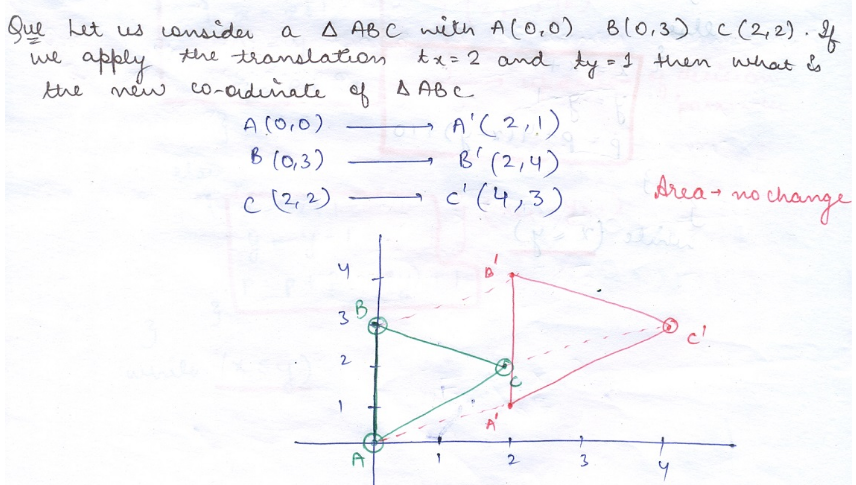 Que Let us consider a △ ABC with A(0,0) B(0,3) C(2,2). If
we apply the translation tx=2 and ty=1 then what is
the new co-ordinate of △ABC
A(0,0) → A'(2,1)
B(0,3) → B'(2,4)
C(2,2) → C'(4,3)
Area → no change
4 B'
B
3 C'
2 C
1
A'
A 1 2 3 4